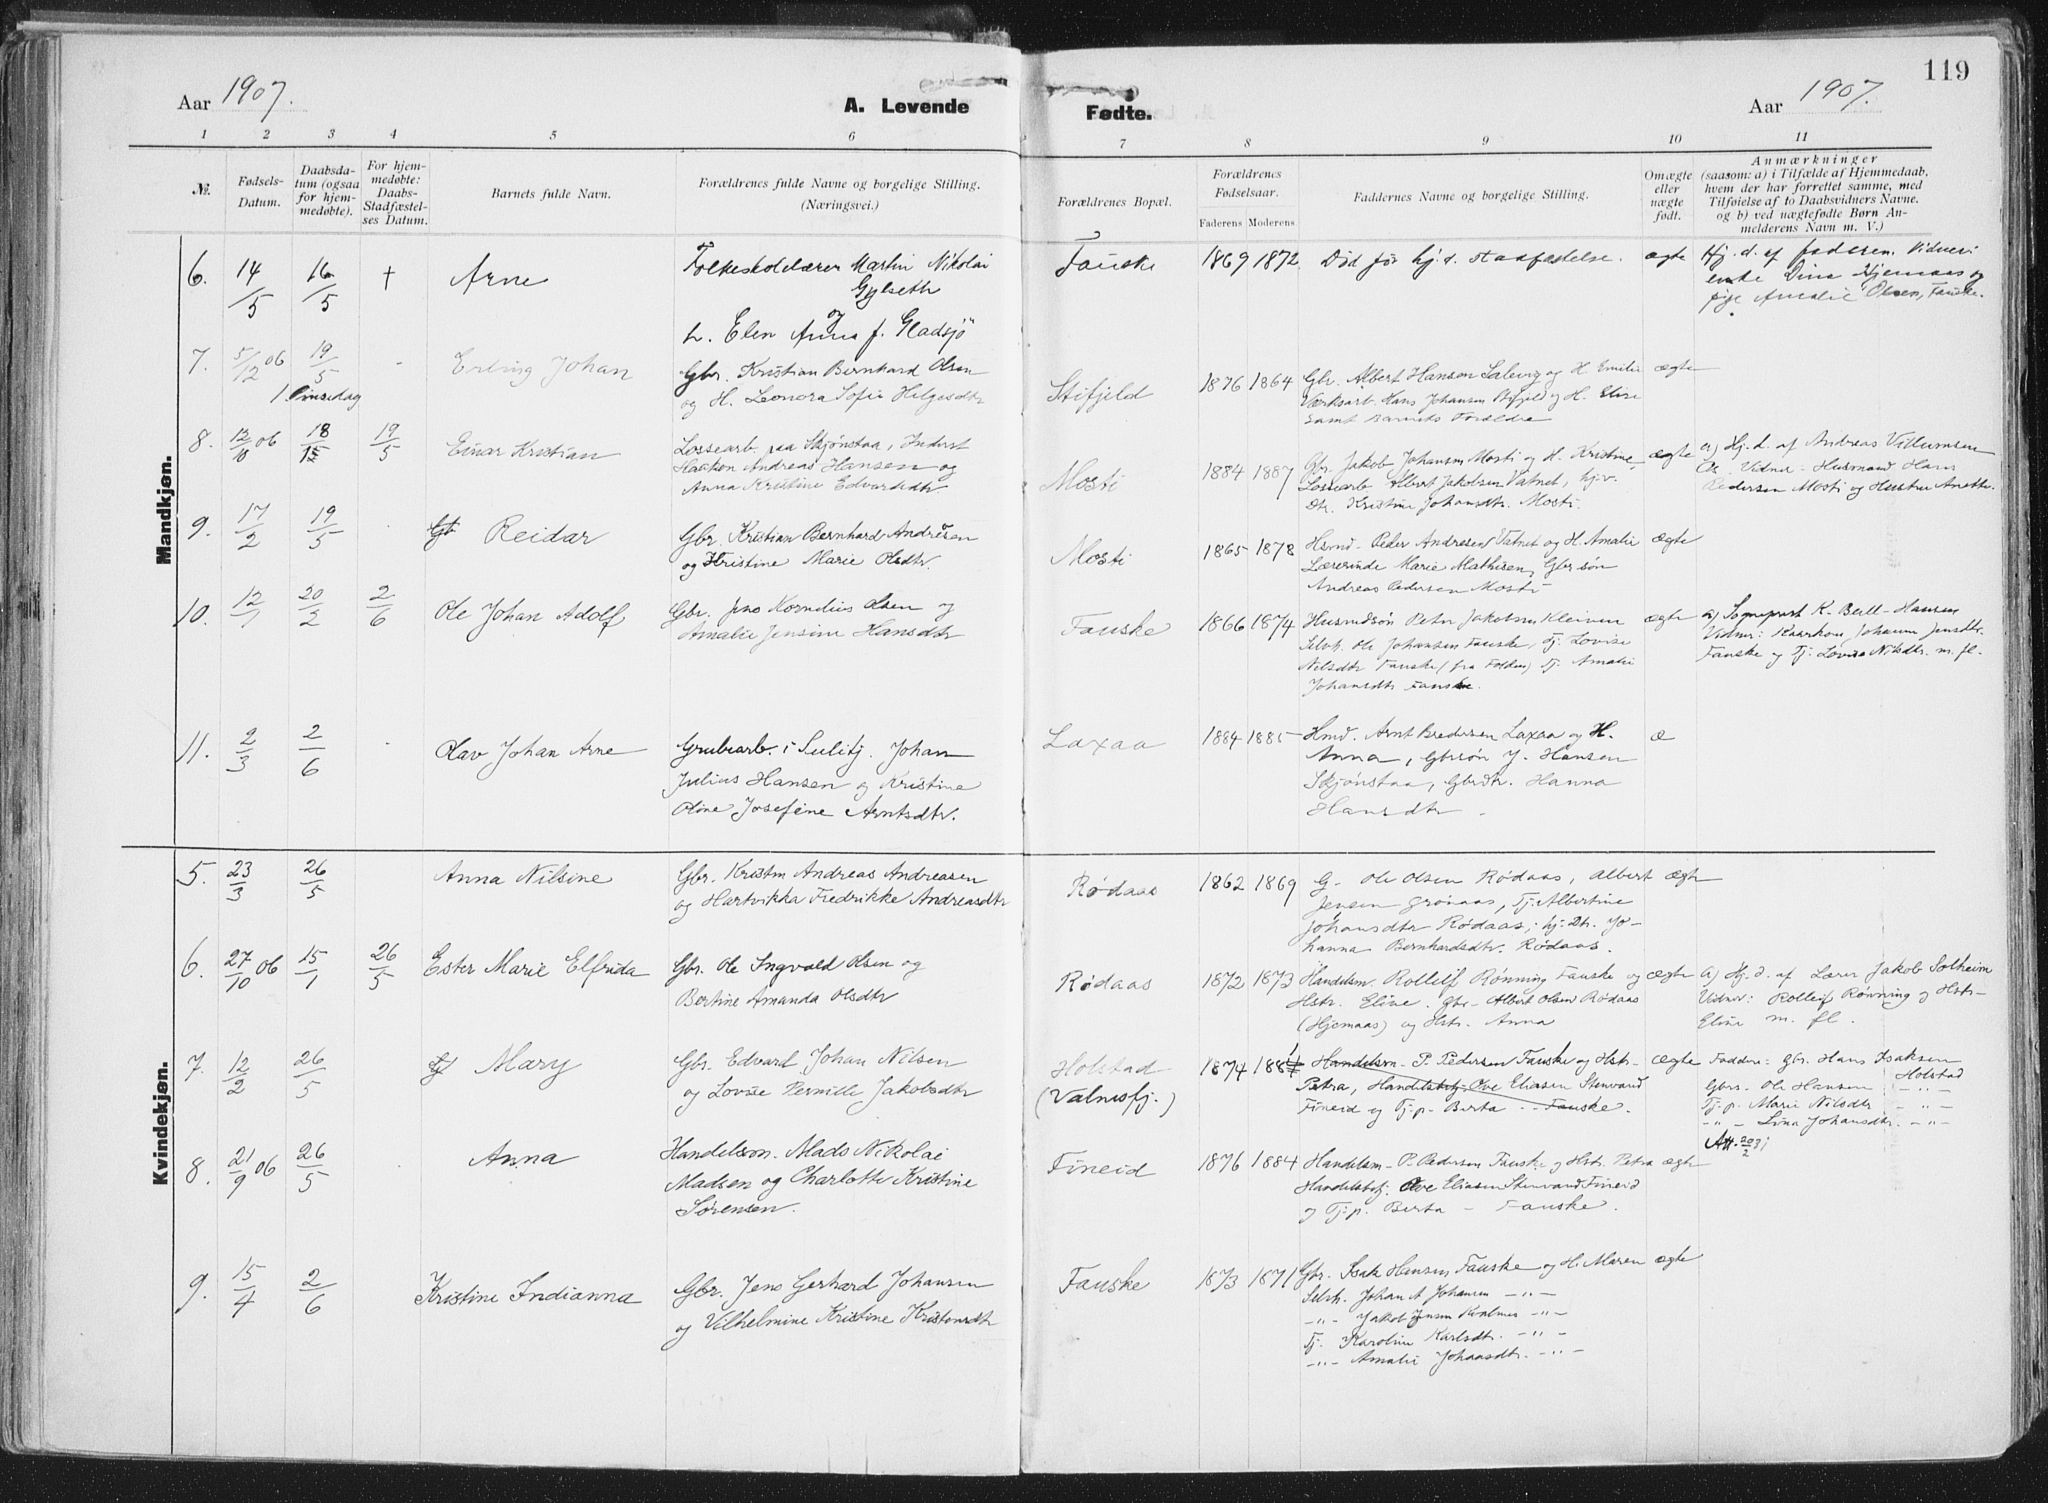 119
Aar 1907.
A. Levende
Fødte.
Aar 1907.
1 2 3 4 5 6 7 8 9 10 11
№.
Fødsels-
Datum.
Daabsda-
tum (ogsaa
for hjem-
medøbte).
For hjem-
medøbte:
Daabs-
Stadfæstel-
ses Datum.
Barnets fulde Navn.
Forældrenes fulde Navne og borgelige Stilling.
(Næringsvei.)
Forældrenes Bopæl.
Forældrenes
Fødselsaar.
Faderens Moderens
Faddernes Navne og borgelige Stilling.
Om ægte
eller
nægte
født.
Anmærkninger
(saasom: a) i Tilfælde af Hjemmedaab,
hvem der har forrettet samme, med
Tilføielse af to Daabsvidners Navne.
og b) ved uægtefødte Børn An-
melderens Navn m. V.)
Mandkjøn.
6. 14/5 16/5 + Arne
Folkeskolelærer Martin Nikolai
Gylseth
og
h. Elen Anna f. Gladsjö
Fauske 1869 1872 Död før hj.d. stadfæstelse. ægte
Hj. d. af faderen. Vidner:
enke Dina Hjemaas og
pige Amalie Olsen, Fauske.
7. 5/12 06 19/5 - Erling Johan
1. Pinsedag
Gbr. Kristian Bernhard Olsen
og H. Leonora Sofie Helgesdtr
Stifjeld 1876 1864
Gbr. Albert Hansen Salevig og H. Emilie ægte
Værksarb. Hans Johansen og H. Elise
samt Barnets Forældre
8. 12/10 06 18/15 19/5 Einar Kristian
Lossearb. paa Skjönstaa, Inderst
Haakon Andreas Hansen og
Anna Kristine Edvardsdtr
Mosti 1884 1887
Gbr. Jakob Johansen Mosti og H. Kristine, ægte
Lossearb Albert Jakobsen Vatnet, hj.v.
Dtr. Kristine Johansdtr. Mosti.
a) Hj. d. af Andreas Villumsen
Vidner - Husmand Hans
Pedersen Mosti og Hustru Anette.
9. 17/2 19/5 . Reidar
Gbr. Kristian Bernhard Andresen
og Kristine Marie Olsdtr.
Mosti 1865 1878
Hsmd. Peder Andresen Vatnet og H. Amalie ægte
Lærerinde Marie Mathisen, Gbr søn
Andreas Pedersen Mosti
10. 12/1 20/2 2/6 Ole Johan Adolf
Gbr. Jens Kornelius Olsen og
Amalie Jensine Hansdtr
Fauske 1866 1874
Husmdsön Peter Jakobsen Kleiven ægte
Selvh. Ole Johansen Fauske, Tj. Lovise
Nilsdtr Fauske (fra Folden) Tj. Amalie
Johansdtr Fauske.
a) Sognepræst K. Bull-Hansen
Vidner: Johanna Jensdtr.
Fauske og Tj. Lovise Nilsdtr. m. fl.
11. 2/3 2/6 . Olav Johan Arne
Grubearb. i Sulitj. Johan
Julius Hansen og Kristine
Oline Josefine Arntsdtr.
Laxaa 1884 1885
Hmd. Arnt Bredesen Laxaa og H. æ
Anna, Gbrsön J. Hansen
Skjönstaa, Gbrdtr. Hanna
Hansdtr -
Kvindekjøn.
5. 23/3 26/5 Anna Nilsine
Gbr. Kristen Andreas Andreasen
og Hartvikka Fredrikke Andreasdtr
Rødaas 1862 1869
G- Ole Olsen Rødaas, Albert ægte
Jensen Grönaas, Tj. Albertine
Johansdtr Rødaas, hj. Dtr. Jo-
hanna Bernhardsdtr. Rødaas.
6. 27/10 06 15/1 26/5 Ester Marie Elfrida
Gbr. Ole Ingvald Olsen og
Bertine Amanda Olsdtr
Rødaas 1872 1873
Handelsm. Rolleif Rønning Fauske og ægte
Hstr. Eline. Gbr. Albert Olsen Rødaas
(Hjemaas) og Hstr. Anna
a) Hj. d. af Lærer Jakob Solheim
Vidner: Rolleif Rønning og Hstr-
Eline m. fl.
7. 12/2 26/5 Mary
Gbr. Edvard Johan Nilsen
og Lovise Pernille Jakobsdtr
Holstad
(Valnesfj.)
1874 1881
Handelsm. P. Pedersen Fauske og Hstr. ægte
Petra, Handelsbetj. Ove Eliasen Stenvand
Fineid og Tj. p. Berta - Fauske.
Faddere: Gbr. Hans Isaksen
Holstad
Gbrs. Ole Hansen - " -
Tj. p. Marie Nilsdtr - " -
- " - Lina Johansdtr. - " -
Att. 20/2 31
8. 21/9 06 26/5 . Anna
Handelsm. Mads Nikolai
Madsen og Charlotte Kristine
Sörensen.
Fineid 1876 1884
Handelsm - P. Pedersen Fauske og Hstr. Petra ægte
Handelsbetj. Ove Eliasen Stenvand Fineid
og Tj. p. Berta - Fauske.
9. 15/4 2/6 Kristine Indianna
Gbr. Jens Gerhard Johansen
og Vilhelmine Kristine Kristensdtr
Fauske 1873 1871
Gbr. Isak Hansen Fauske og H. Maren ægte
Selvh. Johan A Johansen - " -
- " - Jakob Jensen Kvalnes - " -
Tj. Karoline Karlsdtr. - " -
- " - Amalie Johansdtr. - " -